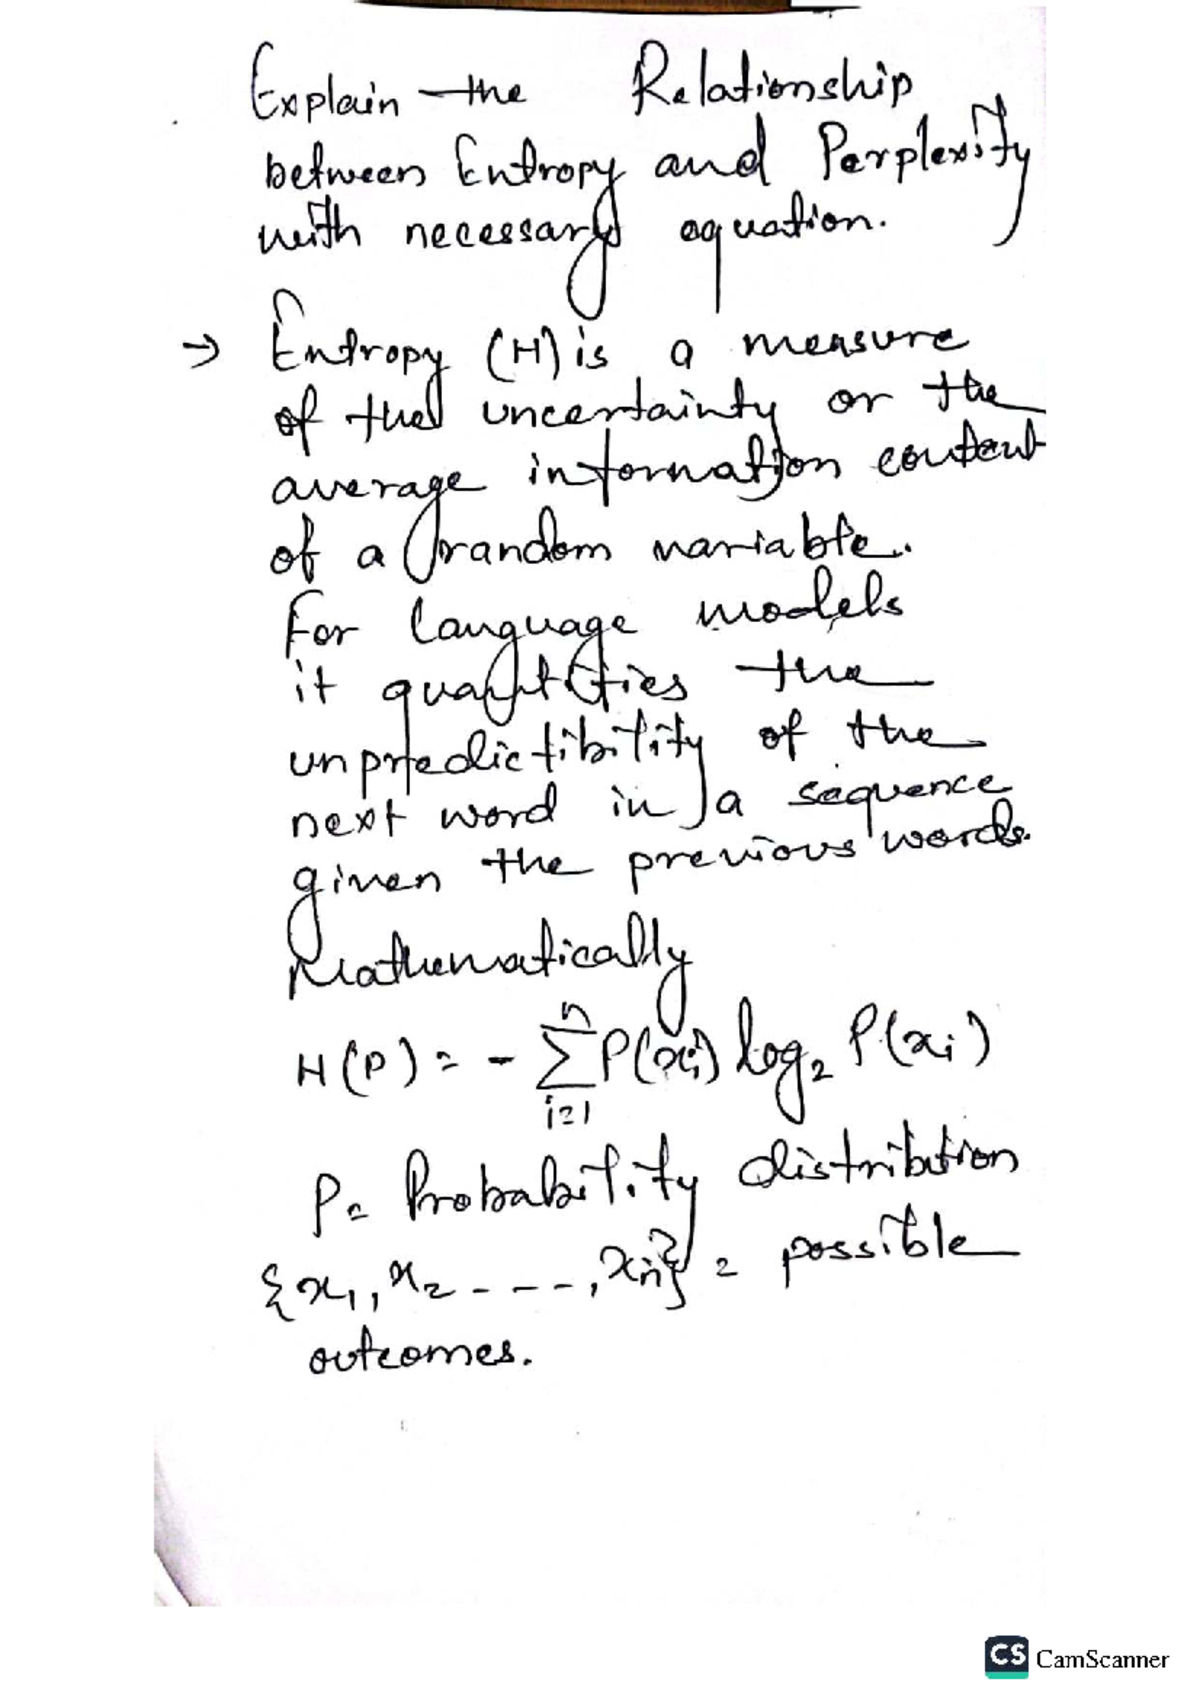 Explain the Relationship
between Entropy and Perplexity
with necessary equation.
→ Entropy (H) is a measure
of the uncertainty or the
average information content
of a random variable.
For language models
it quantifies the
unpredictibility of the
next word in a sequence
given the previous words.
Mathematically
H(P) = - ∑ⁿᵢ₌₁ P(xᵢ) log₂ P(xᵢ)
P = Probability distribution
{x₁, x₂ - - - -, xₙ} = possible
outcomes.
CS CamScanner